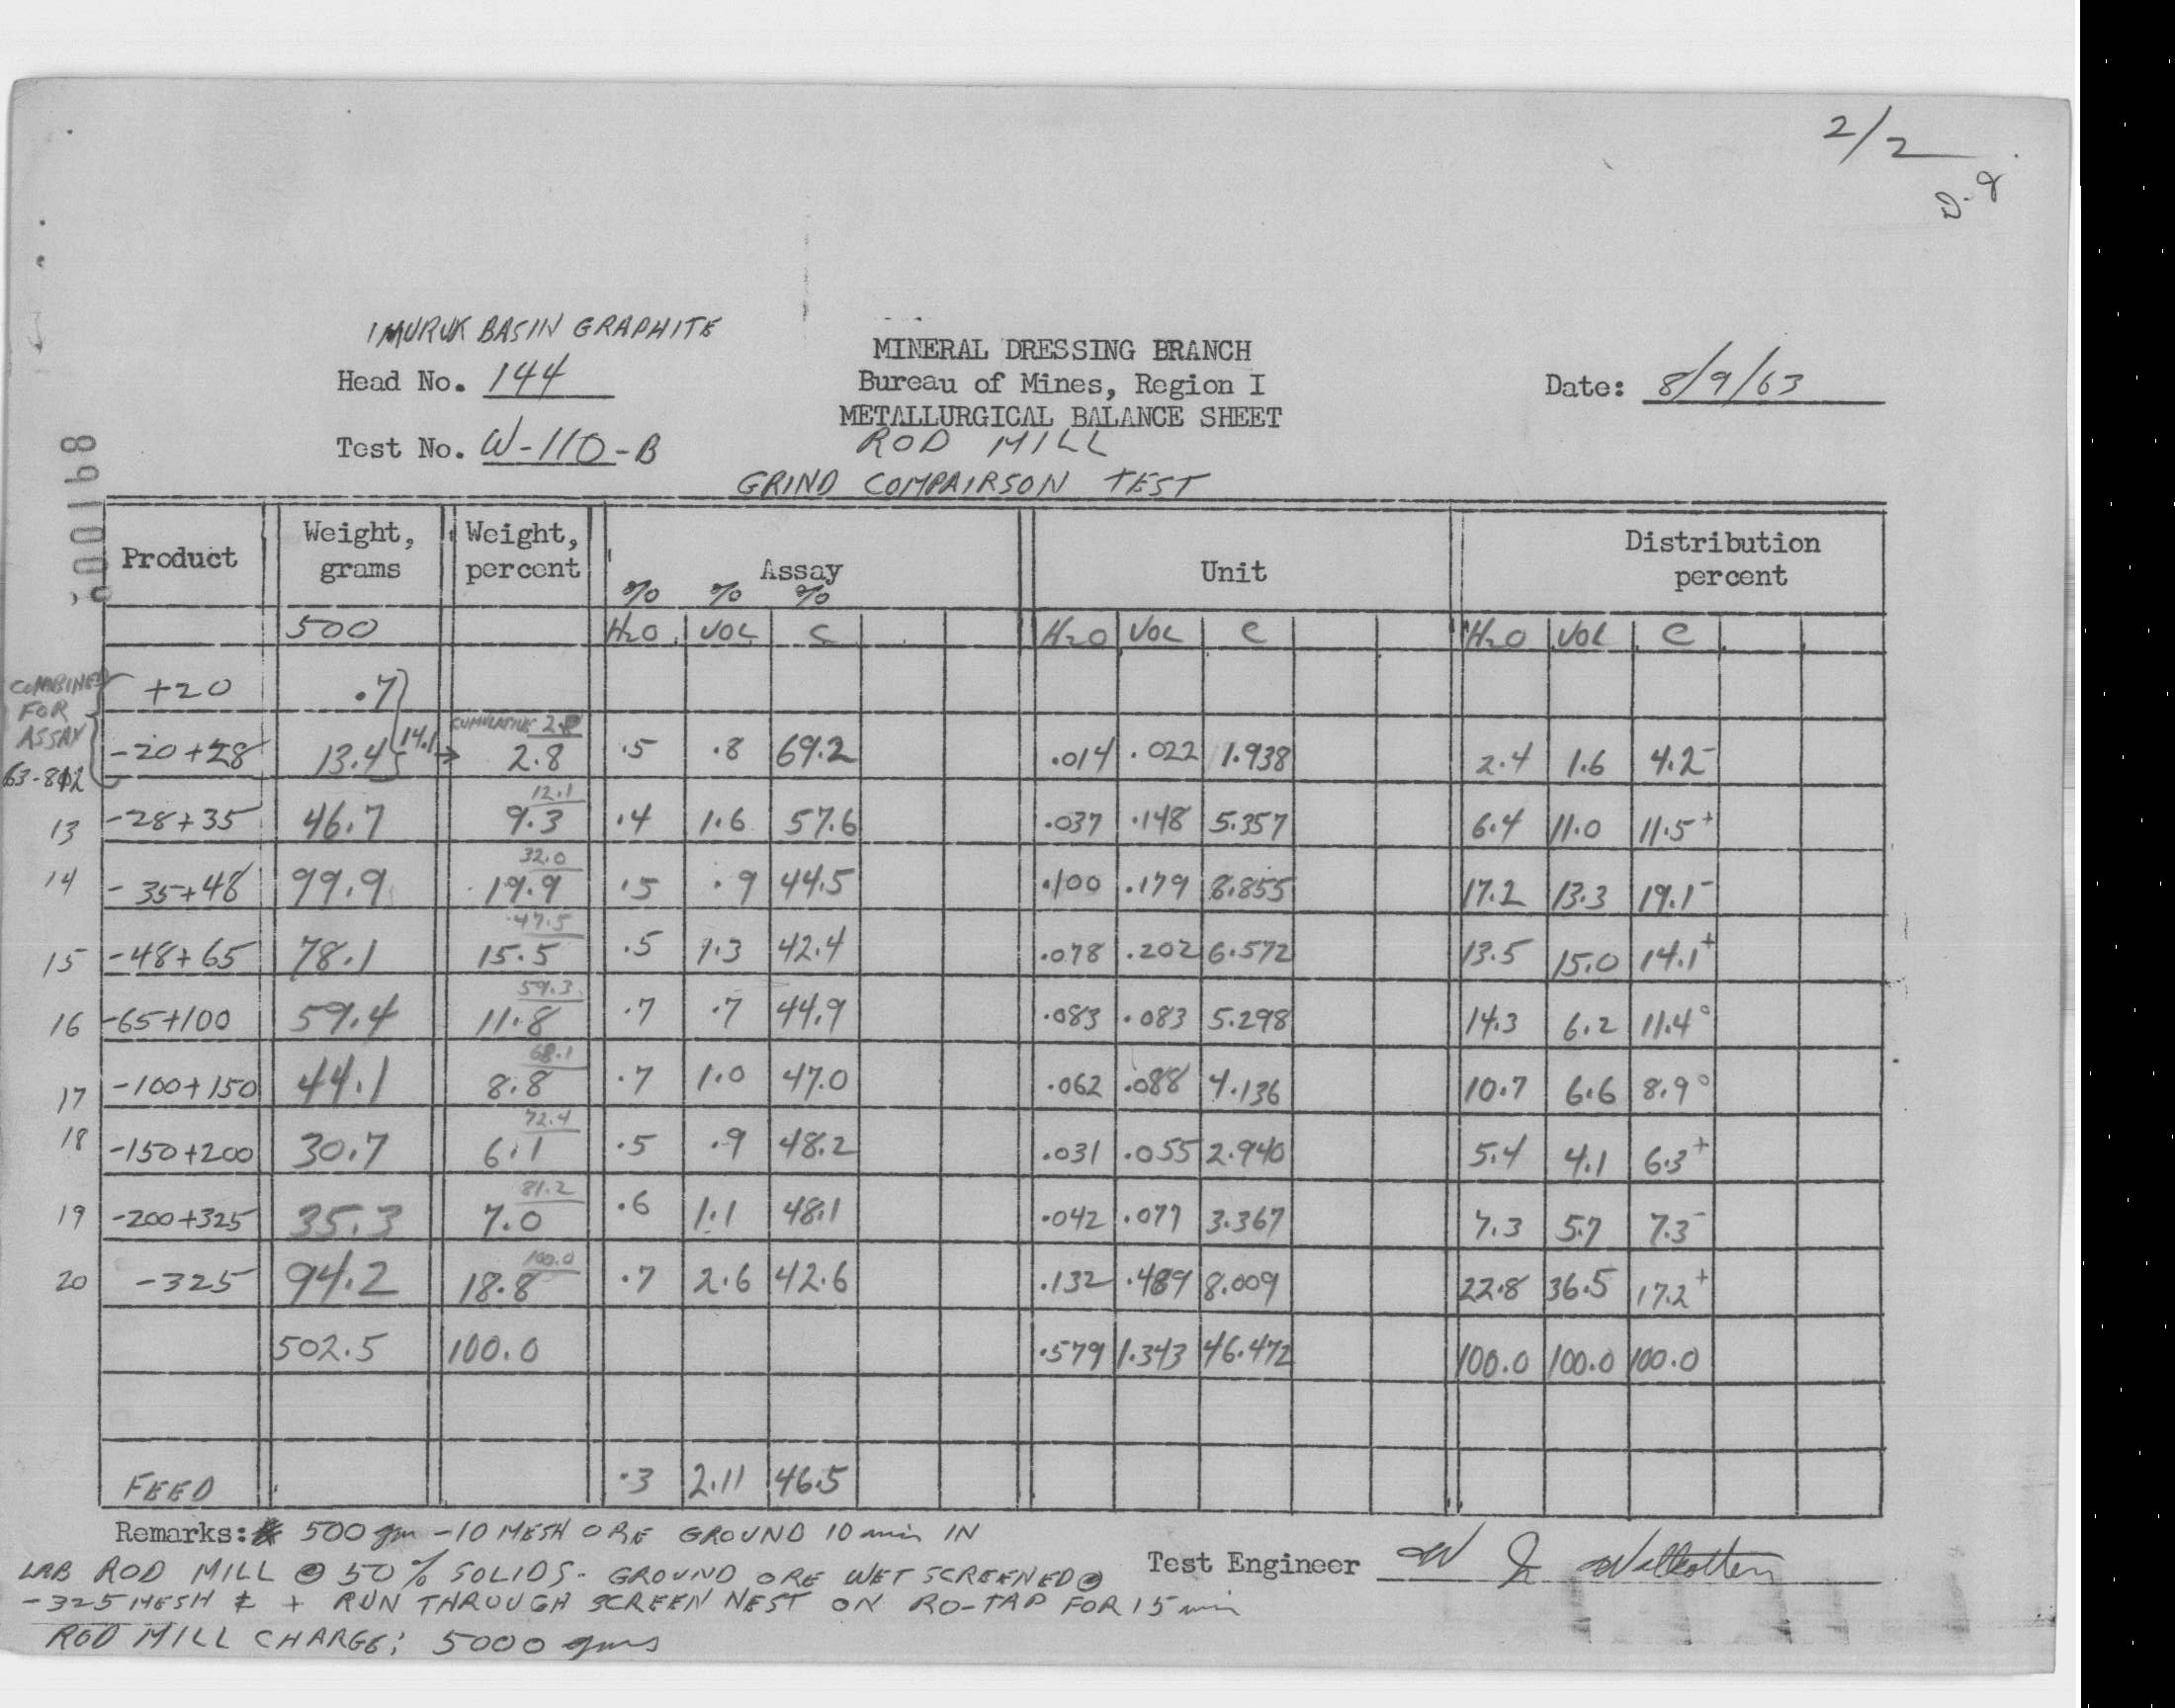 2/2
D-8
IMURUK BASIN GRAPHITE
Head No. 144
MINERAL DRESSING BRANCH
Bureau of Mines, Region I
METALLURGICAL BALANCE SHEET
Date: 8/9/63
Test No. W-110-B
ROD MILL
GRIND COMPAIRSON TEST
Product | Weight, grams | Weight, percent | Assay | Unit | Distribution percent
% % %
500 | H2O | VOL | C | H2O | VOL | C | H2O | VOL | C
COMBINED FOR ASSAY
+20 | .7
63-812 | -20+28 | 13.4 | 14.1 → | CUMULATIVE 2.8 | 2.8 | .5 | .8 | 69.2 | .014 | .022 | 1.938 | 2.4 | 1.6 | 4.2-
13 | -28+35 | 46.7 | 12.1 | 9.3 | .4 | 1.6 | 57.6 | .037 | .148 | 5.357 | 6.4 | 11.0 | 11.5+
14 | -35+48 | 99.9 | 32.0 | 19.9 | .5 | .9 | 44.5 | .100 | .179 | 8.855 | 17.2 | 13.3 | 19.1-
15 | -48+65 | 78.1 | 47.5 | 15.5 | .5 | 1.3 | 42.4 | .078 | .202 | 6.572 | 13.5 | 15.0 | 14.1+
16 | -65+100 | 59.4 | 59.3 | 11.8 | .7 | .7 | 44.9 | .083 | .083 | 5.298 | 14.3 | 6.2 | 11.4°
17 | -100+150 | 44.1 | 68.1 | 8.8 | .7 | 1.0 | 47.0 | .062 | .088 | 4.136 | 10.7 | 6.6 | 8.9°
18 | -150+200 | 30.7 | 72.4 | 6.1 | .5 | .9 | 48.2 | .031 | .055 | 2.940 | 5.4 | 4.1 | 6.3+
19 | -200+325 | 35.3 | 81.2 | 7.0 | .6 | 1.1 | 48.1 | .042 | .077 | 3.367 | 7.3 | 5.7 | 7.3-
20 | -325 | 94.2 | 100.0 | 18.8 | .7 | 2.6 | 42.6 | .132 | .489 | 8.009 | 22.8 | 36.5 | 17.2+
502.5 | 100.0 | .579 | 1.343 | 46.472 | 100.0 | 100.0 | 100.0
FEED | .3 | 2.11 | 46.5
Remarks: 500 gm -10 MESH ORE GROUND 10 min IN
LAB ROD MILL @ 50% SOLIDS. GROUND ORE WET SCREENED @
-325 MESH & + RUN THROUGH SCREEN NEST ON RO-TAP FOR 15 min
ROD MILL CHARGE: 5000 gms
Test Engineer W